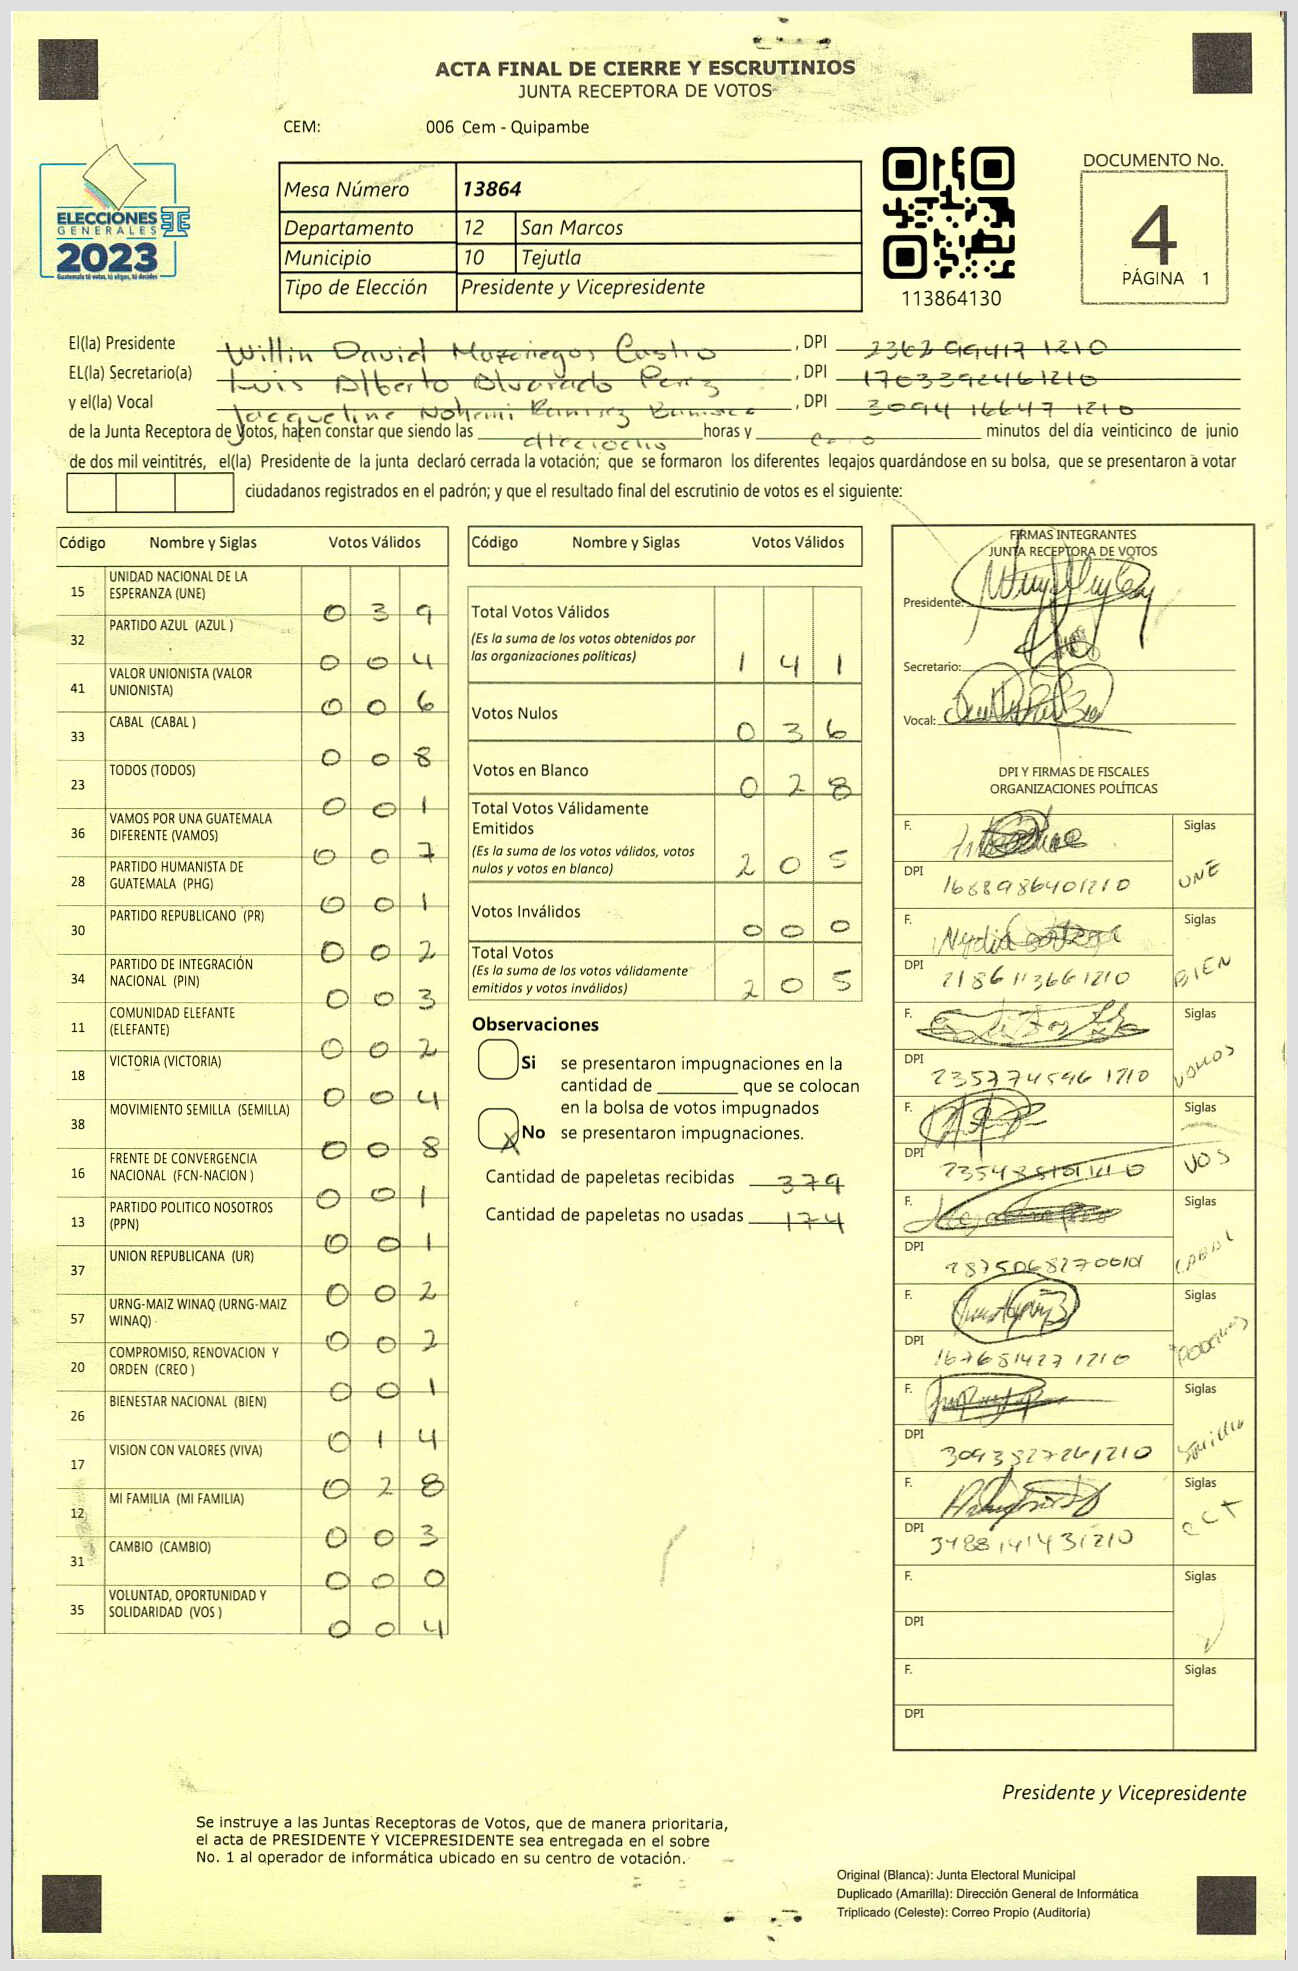 ACTA FINAL DE CIERRE Y ESCRUTINIOS
JUNTA RECEPTORA DE VOTOS
CEM: 006 Cem - Quipambe
ELECCIONES
GENERALES
2023
Guatemala tú votas, tú eliges, tú decides
Mesa Número 13864
Departamento 12 San Marcos
Municipio 10 Tejutla
Tipo de Elección Presidente y Vicepresidente
113864130
DOCUMENTO No.
4
PÁGINA 1
El(la) Presidente Willin David Mazariegos Castro, DPI 2362 99417 1210
EL(la) Secretario(a) Luis Alberto Alvarado Perez, DPI 1703392461210
y el(la) Vocal Jacqueline Nohemi Ramirez, DPI 3094 16647 1210
de la Junta Receptora de Votos, hacen constar que siendo las dieciocho horas y cero minutos del día veinticinco de junio
de dos mil veintitrés, el(la) Presidente de la junta declaró cerrada la votación; que se formaron los diferentes legajos quardándose en su bolsa, que se presentaron a votar
ciudadanos registrados en el padrón; y que el resultado final del escrutinio de votos es el siguiente:
Código Nombre y Siglas Votos Válidos
15 UNIDAD NACIONAL DE LA ESPERANZA (UNE) 0 3 9
32 PARTIDO AZUL (AZUL ) 0 0 4
41 VALOR UNIONISTA (VALOR UNIONISTA) 0 0 6
33 CABAL (CABAL ) 0 0 8
23 TODOS (TODOS) 0 0 1
36 VAMOS POR UNA GUATEMALA DIFERENTE (VAMOS) 0 0 7
28 PARTIDO HUMANISTA DE GUATEMALA (PHG) 0 0 1
30 PARTIDO REPUBLICANO (PR) 0 0 2
34 PARTIDO DE INTEGRACIÓN NACIONAL (PIN) 0 0 3
11 COMUNIDAD ELEFANTE (ELEFANTE) 0 0 2
18 VICTORIA (VICTORIA) 0 0 4
38 MOVIMIENTO SEMILLA (SEMILLA) 0 0 8
16 FRENTE DE CONVERGENCIA NACIONAL (FCN-NACION ) 0 0 1
13 PARTIDO POLITICO NOSOTROS (PPN) 0 0 1
37 UNION REPUBLICANA (UR) 0 0 2
57 URNG-MAIZ WINAQ (URNG-MAIZ WINAQ) 0 0 2
20 COMPROMISO, RENOVACION Y ORDEN (CREO ) 0 0 1
26 BIENESTAR NACIONAL (BIEN) 0 1 4
17 VISION CON VALORES (VIVA) 0 2 8
12 MI FAMILIA (MI FAMILIA) 0 0 3
31 CAMBIO (CAMBIO) 0 0 0
35 VOLUNTAD, OPORTUNIDAD Y SOLIDARIDAD (VOS ) 0 0 4
Código Nombre y Siglas Votos Válidos
Total Votos Válidos 1 4 1
(Es la suma de los votos obtenidos por
las organizaciones politicas)
Votos Nulos 0 3 6
Votos en Blanco 0 2 8
Total Votos Válidamente
Emitidos 2 0 5
(Es la suma de los votos válidos, votos
nulos y votos en blanco)
Votos Inválidos 0 0 0
Total Votos 2 0 5
(Es la suma de los votos válidamente
emitidos y votos inválidos)
Observaciones
Si se presentaron impugnaciones en la
cantidad de ________ que se colocan
en la bolsa de votos impugnados
X No se presentaron impugnaciones.
Cantidad de papeletas recibidas 379
Cantidad de papeletas no usadas 174
FIRMAS INTEGRANTES
JUNTA RECEPTORA DE VOTOS
Presidente:
Secretario:
Vocal:
DPI Y FIRMAS DE FISCALES
ORGANIZACIONES POLÍTICAS
F. Siglas
DPI 1688986401210 UNE
F. Siglas
DPI 2186113661210 BIEN
F. Siglas
DPI 235774596 1210 VAMOS
F. Siglas
DPI VOS
F. Siglas
DPI 2875068270101 CABAL
F. Siglas
DPI 167681427 1210 PODEMOS
F. Siglas
DPI 3093527261210 Semilla
F. Siglas
DPI 3488141431210
F. Siglas
DPI
F. Siglas
DPI
Presidente y Vicepresidente
Se instruye a las Juntas Receptoras de Votos, que de manera prioritaria,
el acta de PRESIDENTE Y VICEPRESIDENTE sea entregada en el sobre
No. 1 al operador de informática ubicado en su centro de votación.
Original (Blanca): Junta Electoral Municipal
Duplicado (Amarilla): Dirección General de Informática
Triplicado (Celeste): Correo Propio (Auditoría)